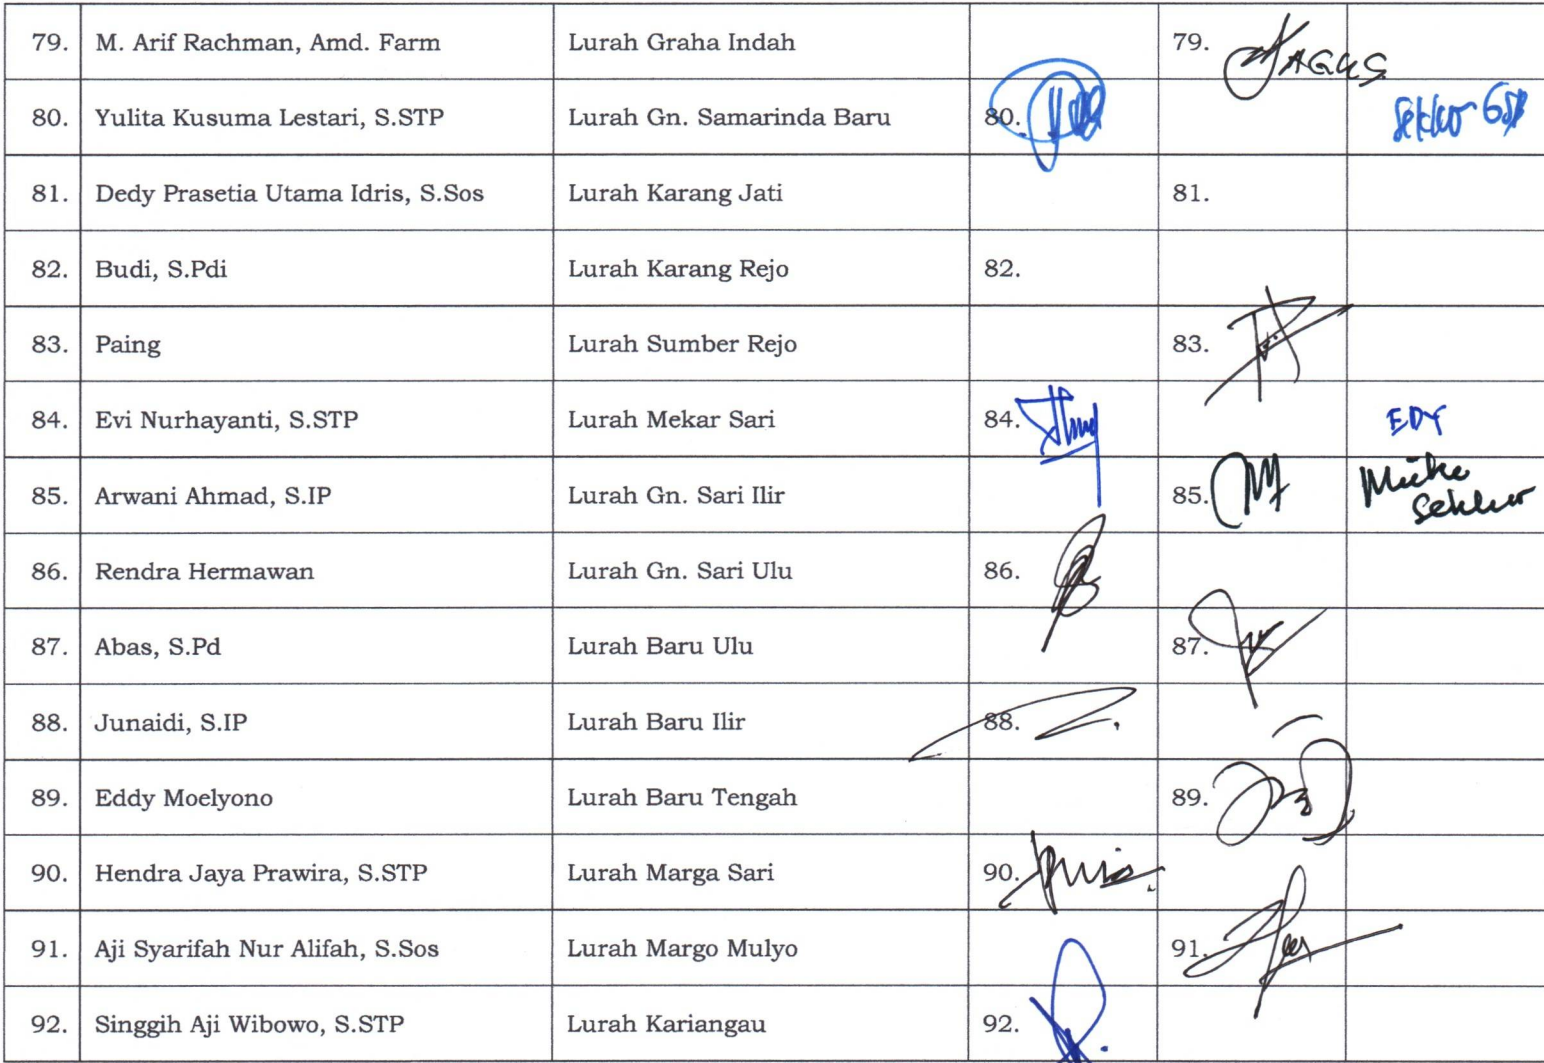 79. M. Arif Rachman, Amd. Farm Lurah Graha Indah 79. AGUS
80. Yulita Kusuma Lestari, S.STP Lurah Gn. Samarinda Baru 80.
81. Dedy Prasetia Utama Idris, S.Sos Lurah Karang Jati 81.
82. Budi, S.Pdi Lurah Karang Rejo 82.
83. Paing Lurah Sumber Rejo 83.
84. Evi Nurhayanti, S.STP Lurah Mekar Sari 84. EDY
85. Arwani Ahmad, S.IP Lurah Gn. Sari Ilir 85.
86. Rendra Hermawan Lurah Gn. Sari Ulu 86.
87. Abas, S.Pd Lurah Baru Ulu 87.
88. Junaidi, S.IP Lurah Baru Ilir 88.
89. Eddy Moelyono Lurah Baru Tengah 89.
90. Hendra Jaya Prawira, S.STP Lurah Marga Sari 90.
91. Aji Syarifah Nur Alifah, S.Sos Lurah Margo Mulyo 91.
92. Singgih Aji Wibowo, S.STP Lurah Kariangau 92.